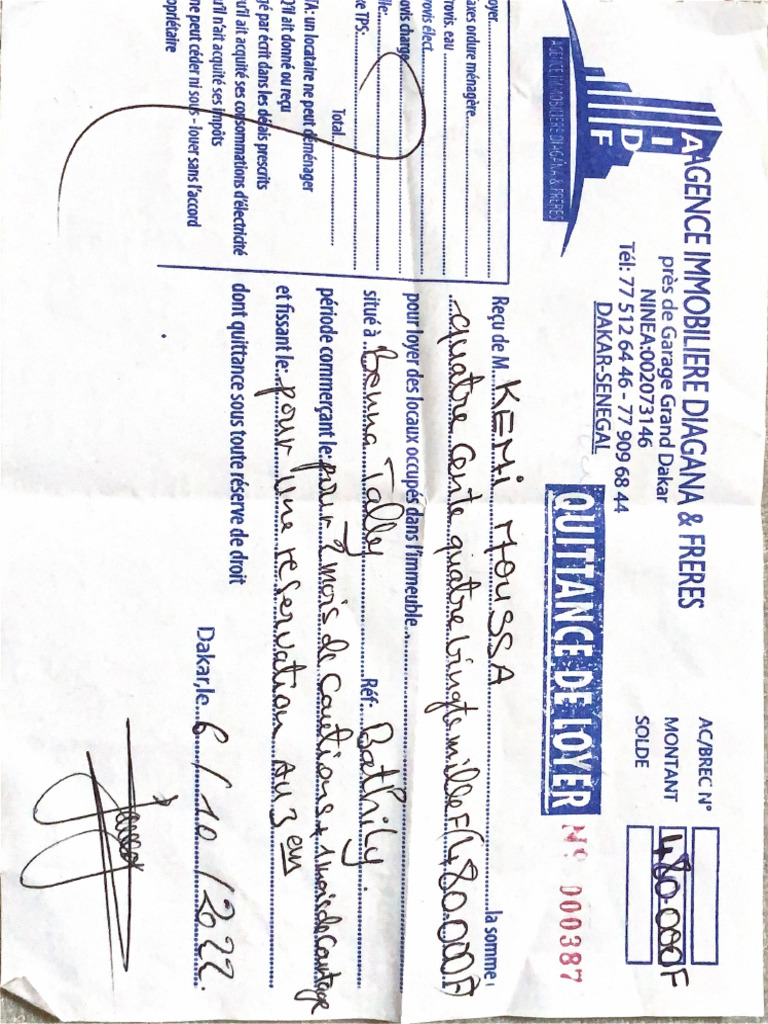 AGENCE IMMOBILIERE DIAGANA & FRERES
près de Garage Grand Dakar
NINEA:002073146
Tél: 77 512 64 46 - 77 909 68 44
DAKAR-SENEGAL
A I D F
AGENCE IMMOBILIERE DIAGANA & FRERES
AC/BREC N°
MONTANT 480.000F
SOLDE
QUITTANCE DE LOYER
N° 000387
oyer
axes ordure ménagère
rovis. eau
rovis élect.
ovis charge
le:
e TPS:
Total
TA: un locataire ne peut déménager
Q'il ait donné ou reçu
gé par écrit dans les délais prescrits
u'il ait acquité ses consommations d'électricité
u'il n'ait acquité ses impôts
ne peut céder ni sous - louer sans l'accord
opriétaire
Reçu de M. KEMI MOUSSA la somme
quatre cente quatre vingte mille F (480.000F)
pour loyer des locaux occupés dans l'immeuble
situé à Benna Tally Réf: Bathily.
période commerçant le: pour 2 mois de cautions + 1 mois de
et fissant le: pour une reservation au 3 em
dont quittance sous toute réserve de droit
Dakar, le 6/10/2022.